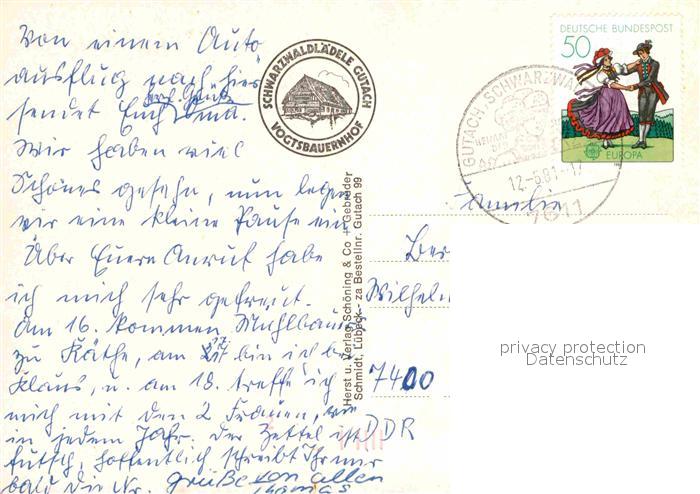 Von einem Auto
ausflug nach hier
sendet Euch herzl. Grüße
Oma.
Wir haben viel
Schönes gesehn, nun legen
wir eine kleine Pause ein
Über Euern Anruf habe
ich mich sehr gefreut.
Am 16. kommen
zu Käthe, am 17. bin ich bei
Klaus, u. am 18. treffe ich
mich mit den 2 Frauen, wie
in jedem Jahr. Der Zettel ist
futsch, hoffentlich schreibt Ihr mir
bald die Nr. Grüße von allen
Thomas
SCHWARZWALDLÄDELE GUTACH
VOGTSBAUERNHOF
Herst u. Verlag Schöning & Co + Gebrüder
Schmidt, Lübeck - za Bestellnr. Gutach 99
DEUTSCHE BUNDESPOST
50
EUROPA
GUTACH SCHWARZWA
12.-6.81-17
7611
Familie
Ber
Wilhelm
7400
DDR
privacy protection
Datenschutz